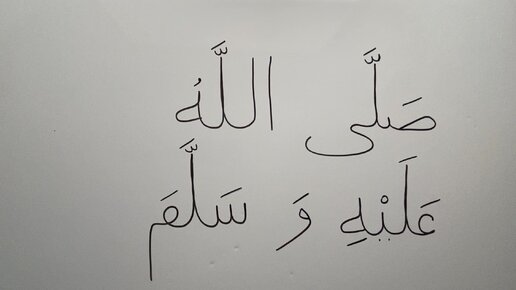 صَلَّى اللَّهُ
عَلَيْهِ وَ سَلَّمَ